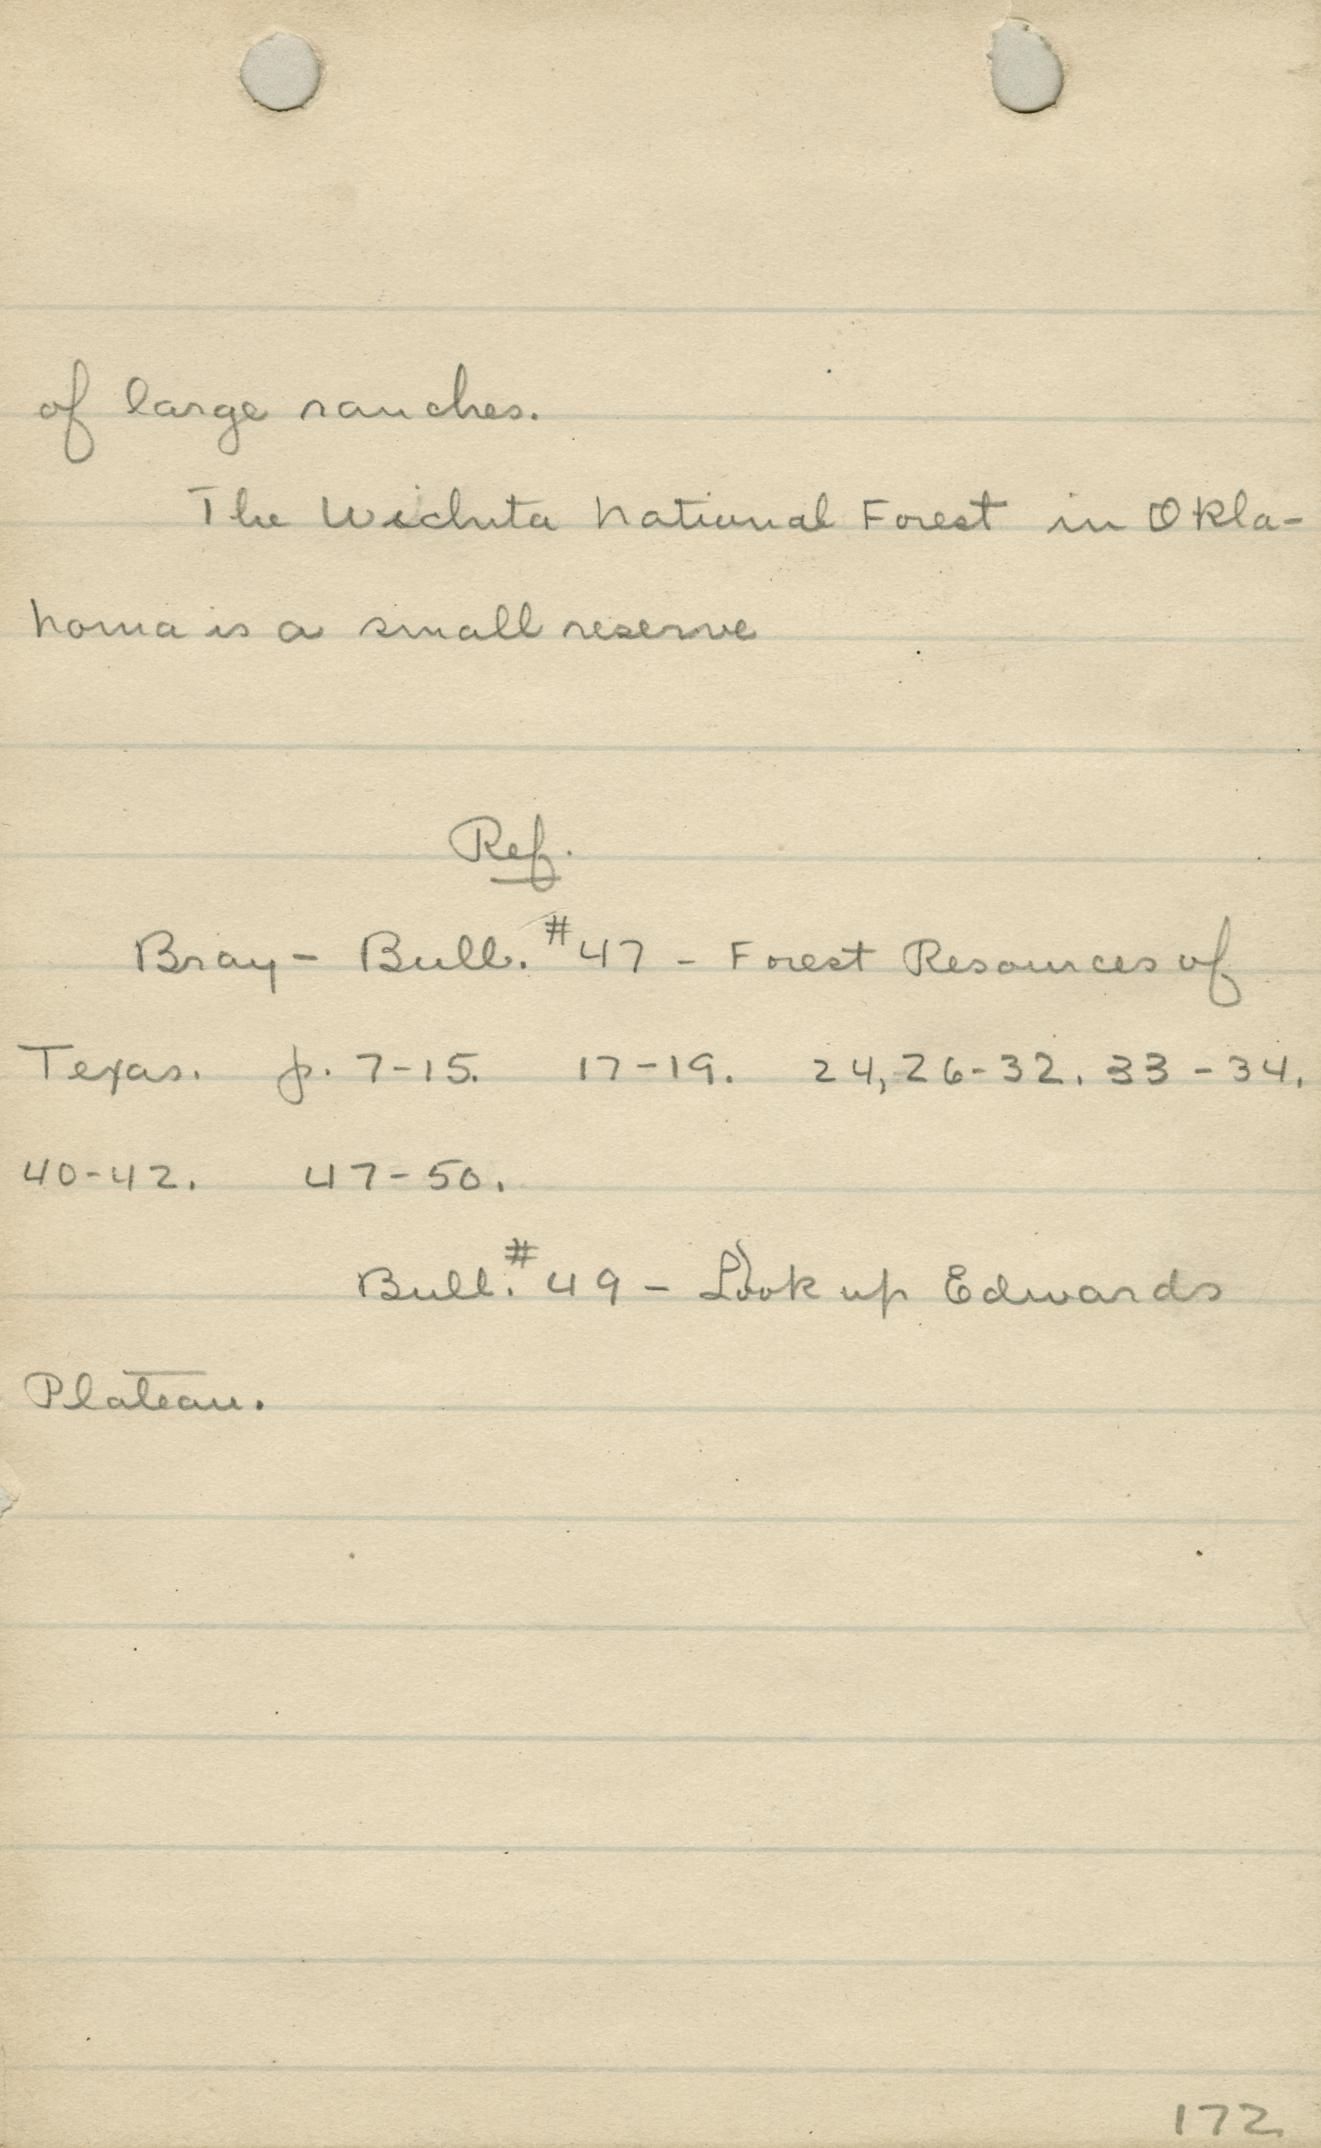 of large ranches.
The Wichita National Forest in Okla-
homa is a small reserve
Ref.
Bray - Bull. #47 - Forest Resources of
Texas. p. 7-15. 17-19. 24, 26-32. 33-34.
40-42. 47-50.
Bull. #49 - Look up Edwards
Plateau.
172